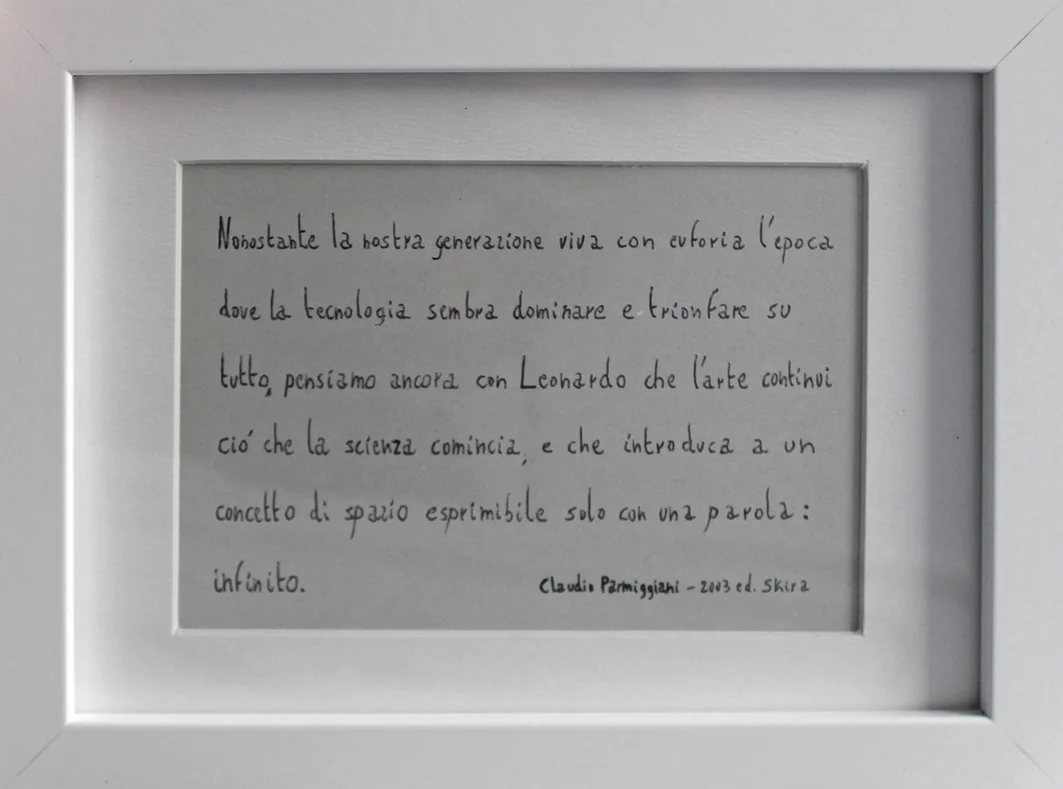 Nonostante la nostra generazione viva con euforia l'epoca
dove la tecnologia sembra dominare e trionfare su
tutto, pensiamo ancora con Leonardo che l'arte continui
ció che la scienza comincia, e che introduca a un
concetto di spazio esprimibile solo con una parola:
infinito.
Claudio Parmiggiani - 2003 ed. Skira